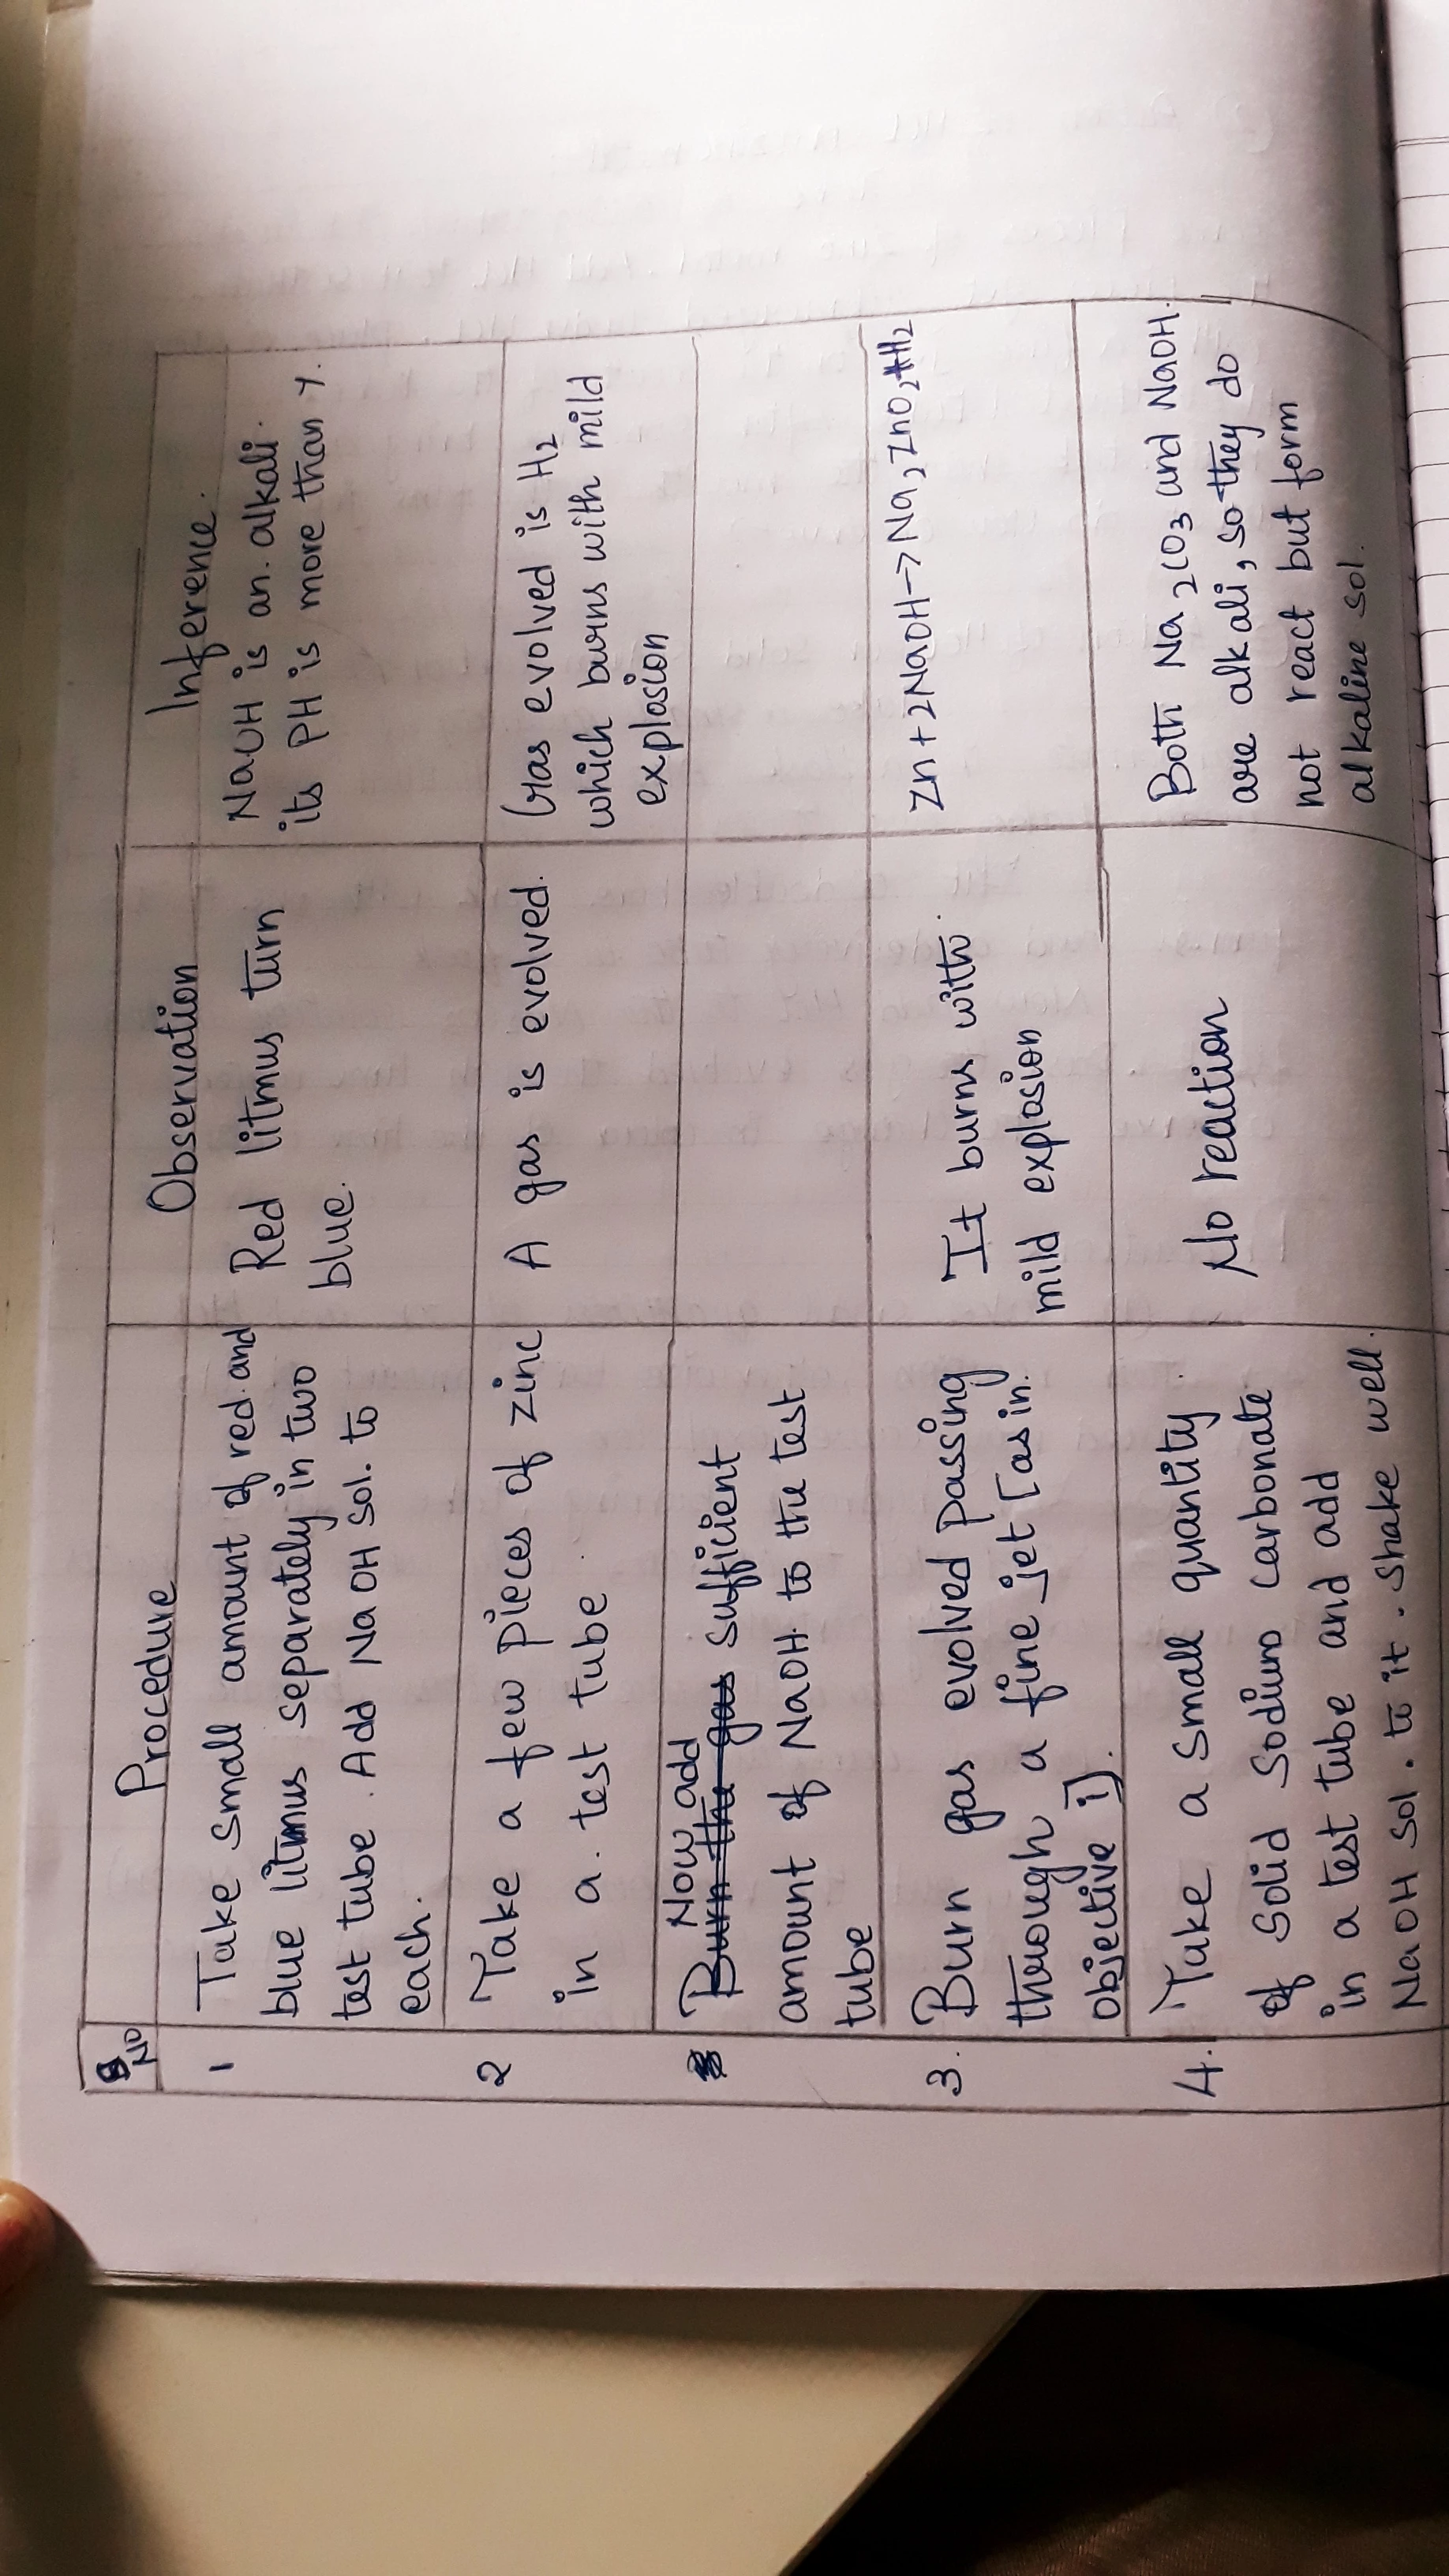 S NO
Procedure
Observation
Inference.
1
Take small amount of red and
blue litmus separately in two
test tube. Add NaOH sol. to
each.
Red litmus turn
blue.
NaOH is an alkali.
its PH is more than 7.
2
Take a few pieces of zinc
in a test tube.
A gas is evolved.
Gas evolved is H2
which burns with mild
explosion
Now add
Burn the gas sufficient
amount of NaOH to the test
tube
3.
Burn gas evolved passing
through a fine jet [as in
objective i)].
It burns with
mild explosion
Zn + 2NaOH → Na2ZnO2+H2
4.
Take a small quantity
of solid sodium carbonate
in a test tube and add
NaOH sol. to it. shake well.
No reaction
Both Na2CO3 and NaOH.
are alkali, so they do
not react but form
alkaline sol.